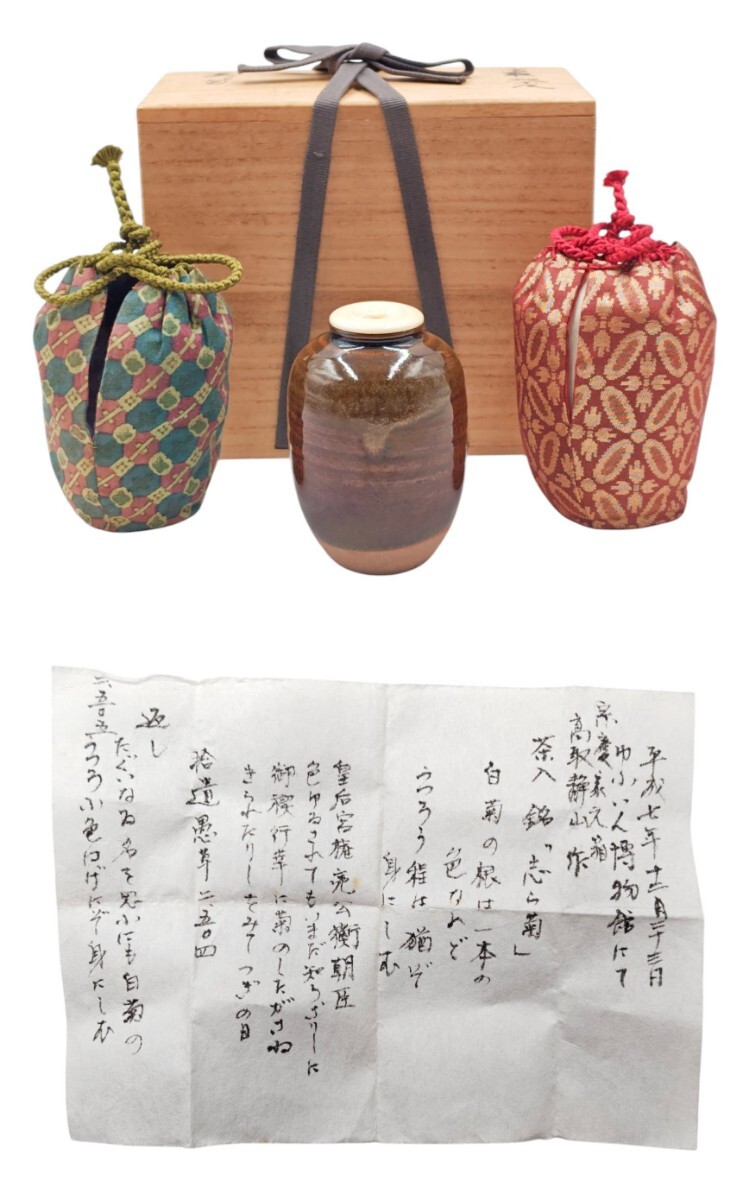 平成七年十二月二十三日
博物館にて
宗慶家元箱
高取静山作
茶入 銘「志ら菊」
白菊の根は一本の
色なれど
うつろう程は猶ぞ
身にしむ
皇后宮権亮公衡朝臣
色ゆるされてもいまだ知らざりしに
御禊行幸に菊のしたがさね
きられたりしをみてつぎの日
拾遺愚草 二、五〇四
返し
二、五〇五
たぐいなる名を思ふにも白菊の
うつろふ色はげにぞ身にしむ